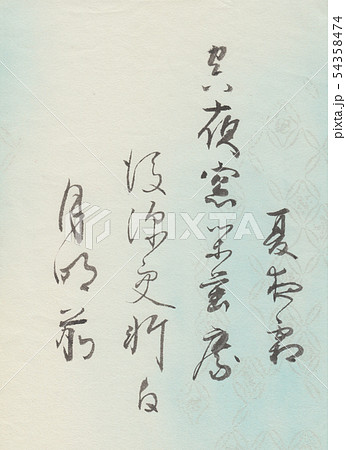 夏夜霜
空夜窓閑蛍度
後深更軒白
月明初
PIXTA
pixta.jp - 54358474